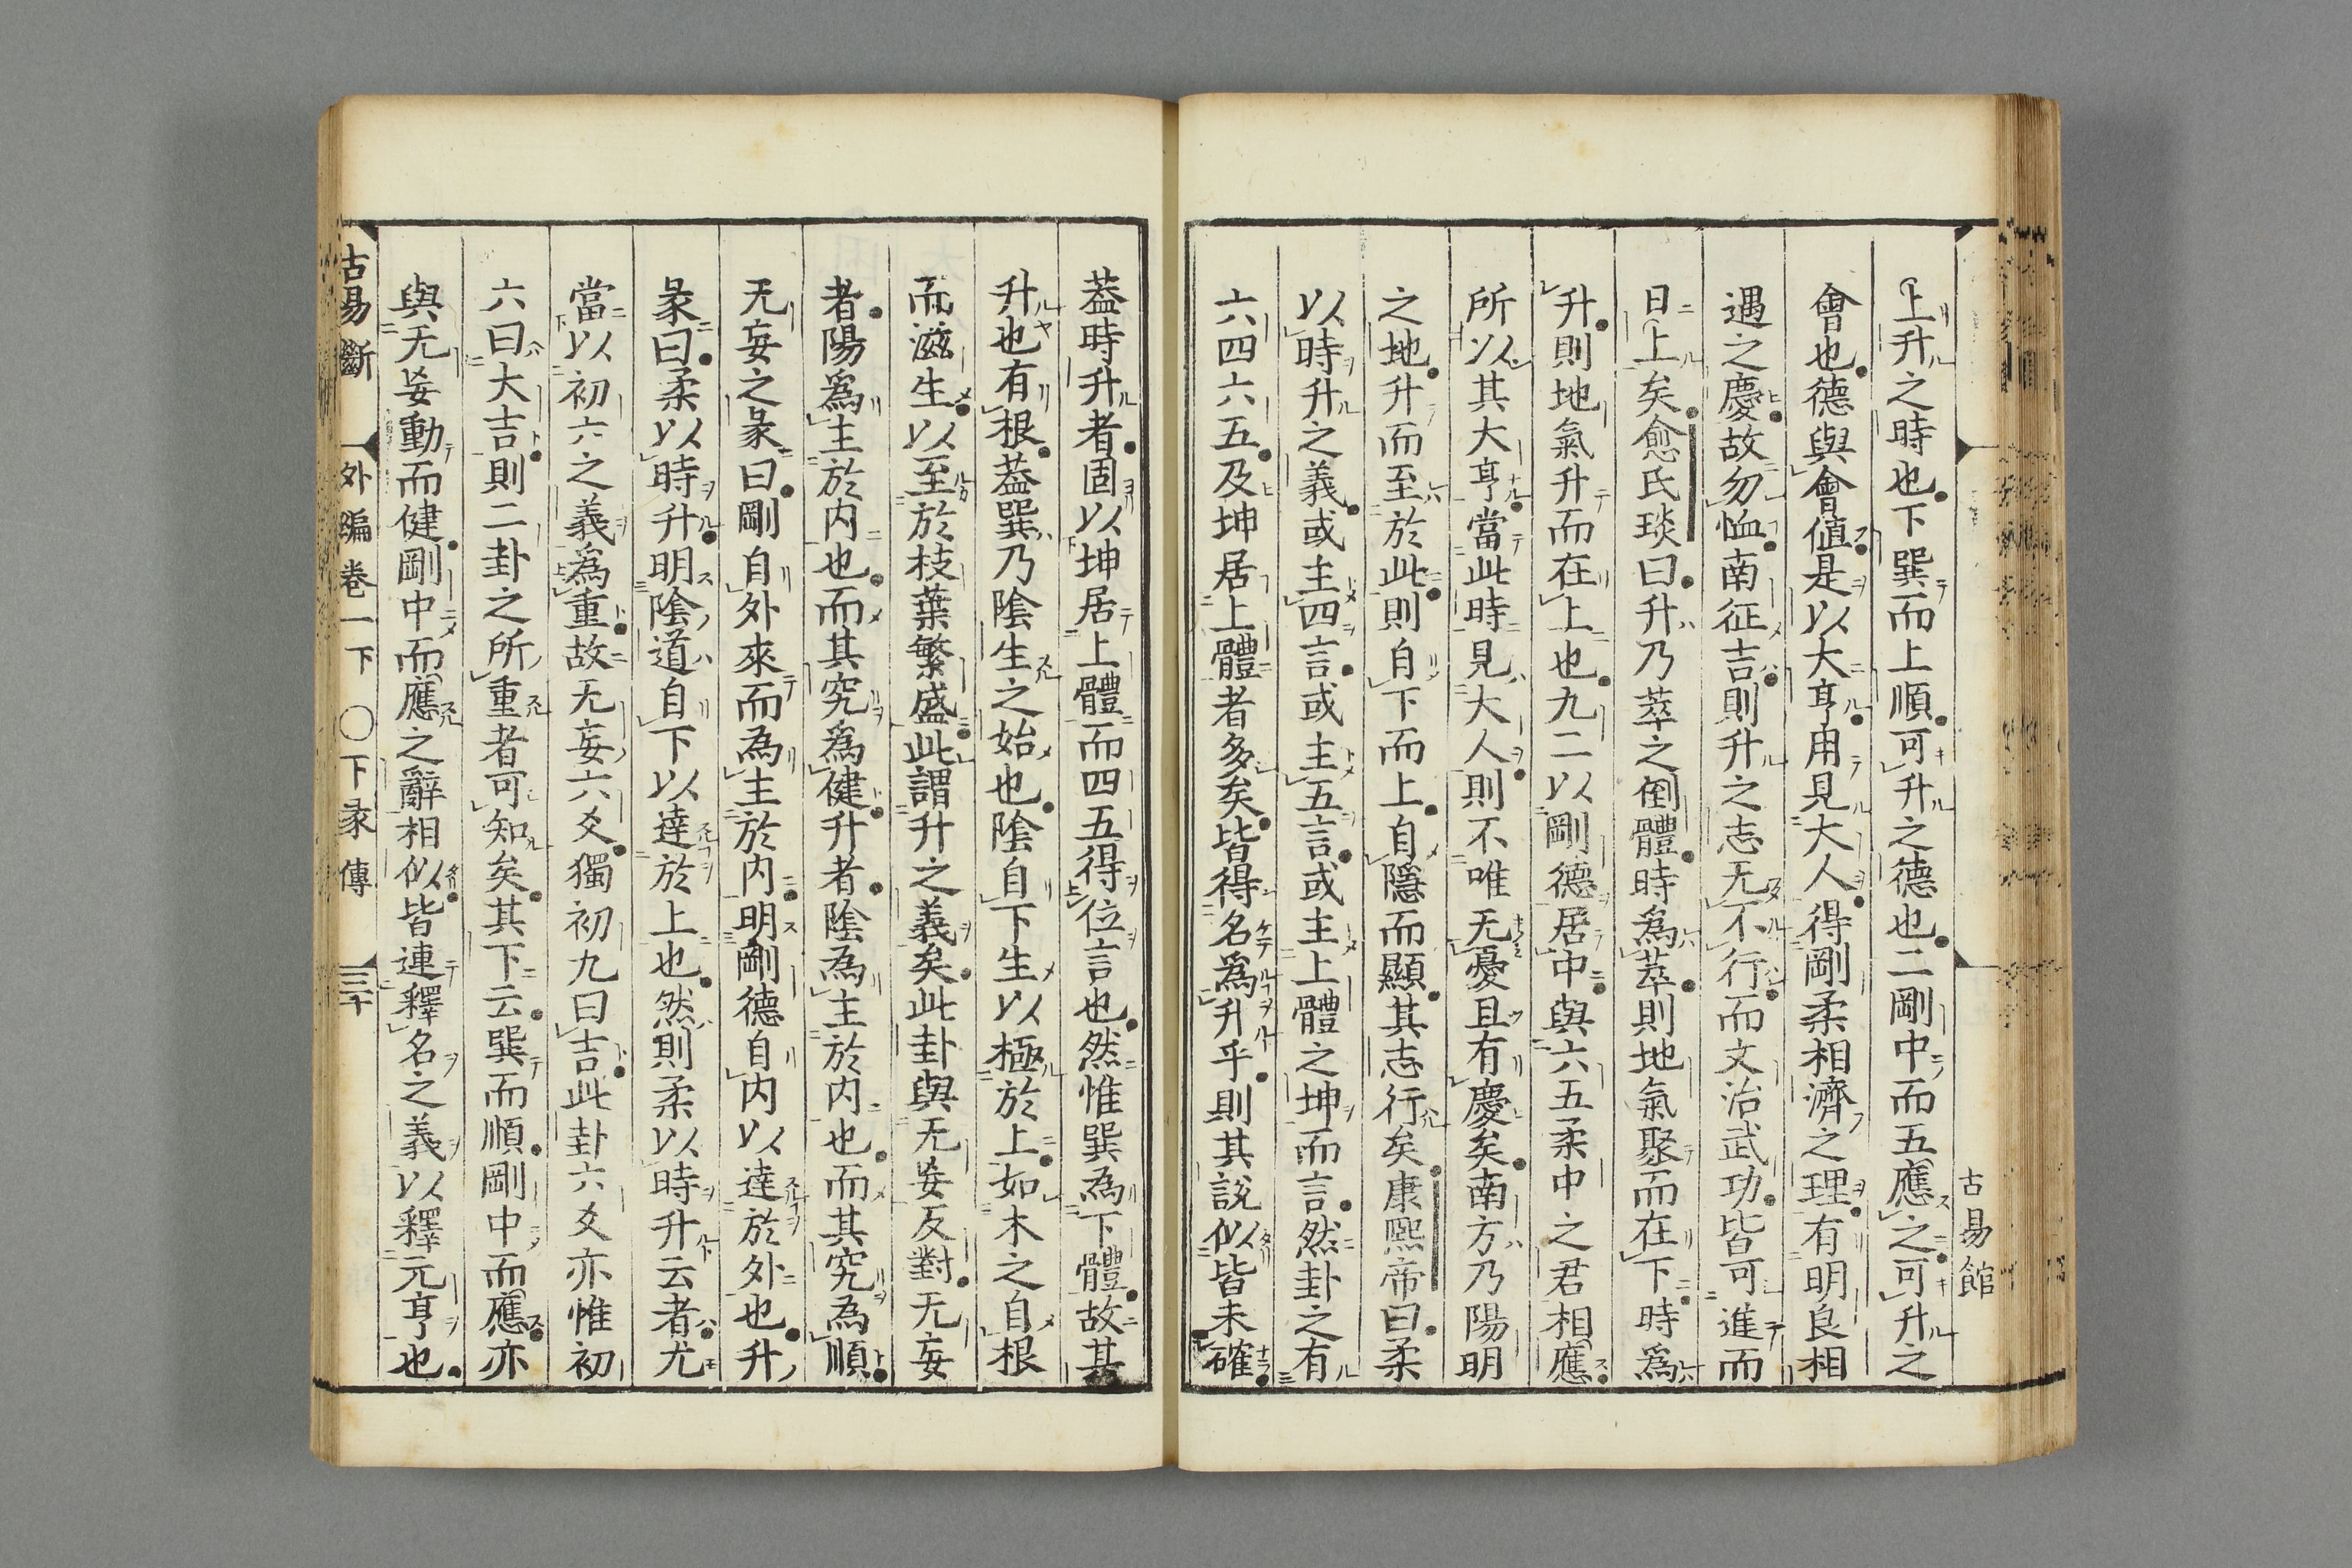 上升之時也下巽而上順可升之德也二剛中而五應之可升之
會也德與會値是以大亨用見大人得剛柔相濟之理有明良相
遇之慶故勿恤南征吉則升之志无不行而文治武功皆可進而
日上矣愈氏琰曰升乃萃之倒體時爲萃則地氣聚而在下時爲
升則地氣升而在上也九二以剛德居中與六五柔中之君相應
所以其大亨當此時見大人則不唯无憂且有慶矣南方乃陽明
之地升而至於此則自下而上自隱而顯其志行矣康熙帝曰柔
以時升之義或主四言或主五言或主上體之坤而言然卦之有
六四六五及坤居上體者多矣皆得名爲升乎則其說似皆未確
古易館
葢時升者固以坤居上體而四五得位言也然惟巽為下體故其
升也有根葢巽乃陰生之始也陰自下生以極於上如木之自根
而滋生以至於枝葉繁盛此謂升之義矣此卦與无妄反對无妄
者陽爲主於内也而其究爲健升者陰為主於内也而其究為順
无妄之彖曰剛自外來而為主於内明剛德自内以達於外也升
彖曰柔以時升明陰道自下以達於上也然則柔以時升云者尤
當以初六之義為重故无妄六爻獨初九曰吉此卦六爻亦惟初
六曰大吉則二卦之所重者可知矣其下云巽而順剛中而應亦
與无妄動而健剛中而應之辭相似皆連釋名之義以釋元亨也
古易斷 外編卷一下 〇下彖傳 三十